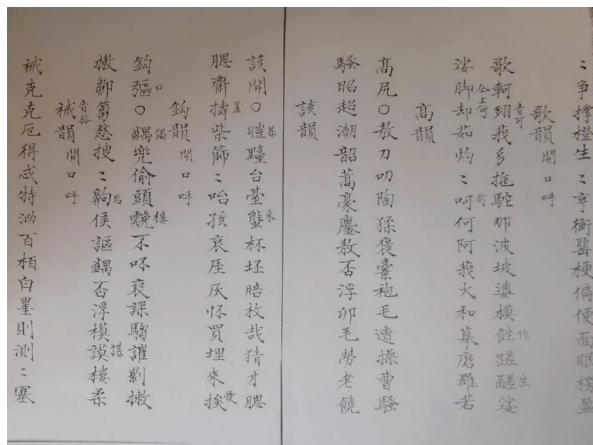 〻争撑橙生〻亨衡罌梗偏便面眠櫻盈
歌韻開口呼
音哥
歌軻翗我多拖駝那波坡婆模銼蹉醝娑
娑脚却茹灼〻呵何阿莪火和摹磨羅若
高韻
高尻〇敖刀叨陶猱褒橐袍毛遭操曹騷
騷昭超潮韶蒿豪鏖敖否浮卯毛勞老饒
該韻
該開〇皚黱台臺鼞杯坯暗枚哉猜才腮
腮齋擣柴篩〻咍孩哀厓灰怀買埋來挨
鈎韻開口呼
鈎彄〇齵兜偷頭
不呸裒謀騶誰剿漱
漱鄒芻愁搜〻齁侯謳齵否浮模謨樓柔
裓韻開口呼
裓克克厄得忒特泐百栢白墨則測〻塞